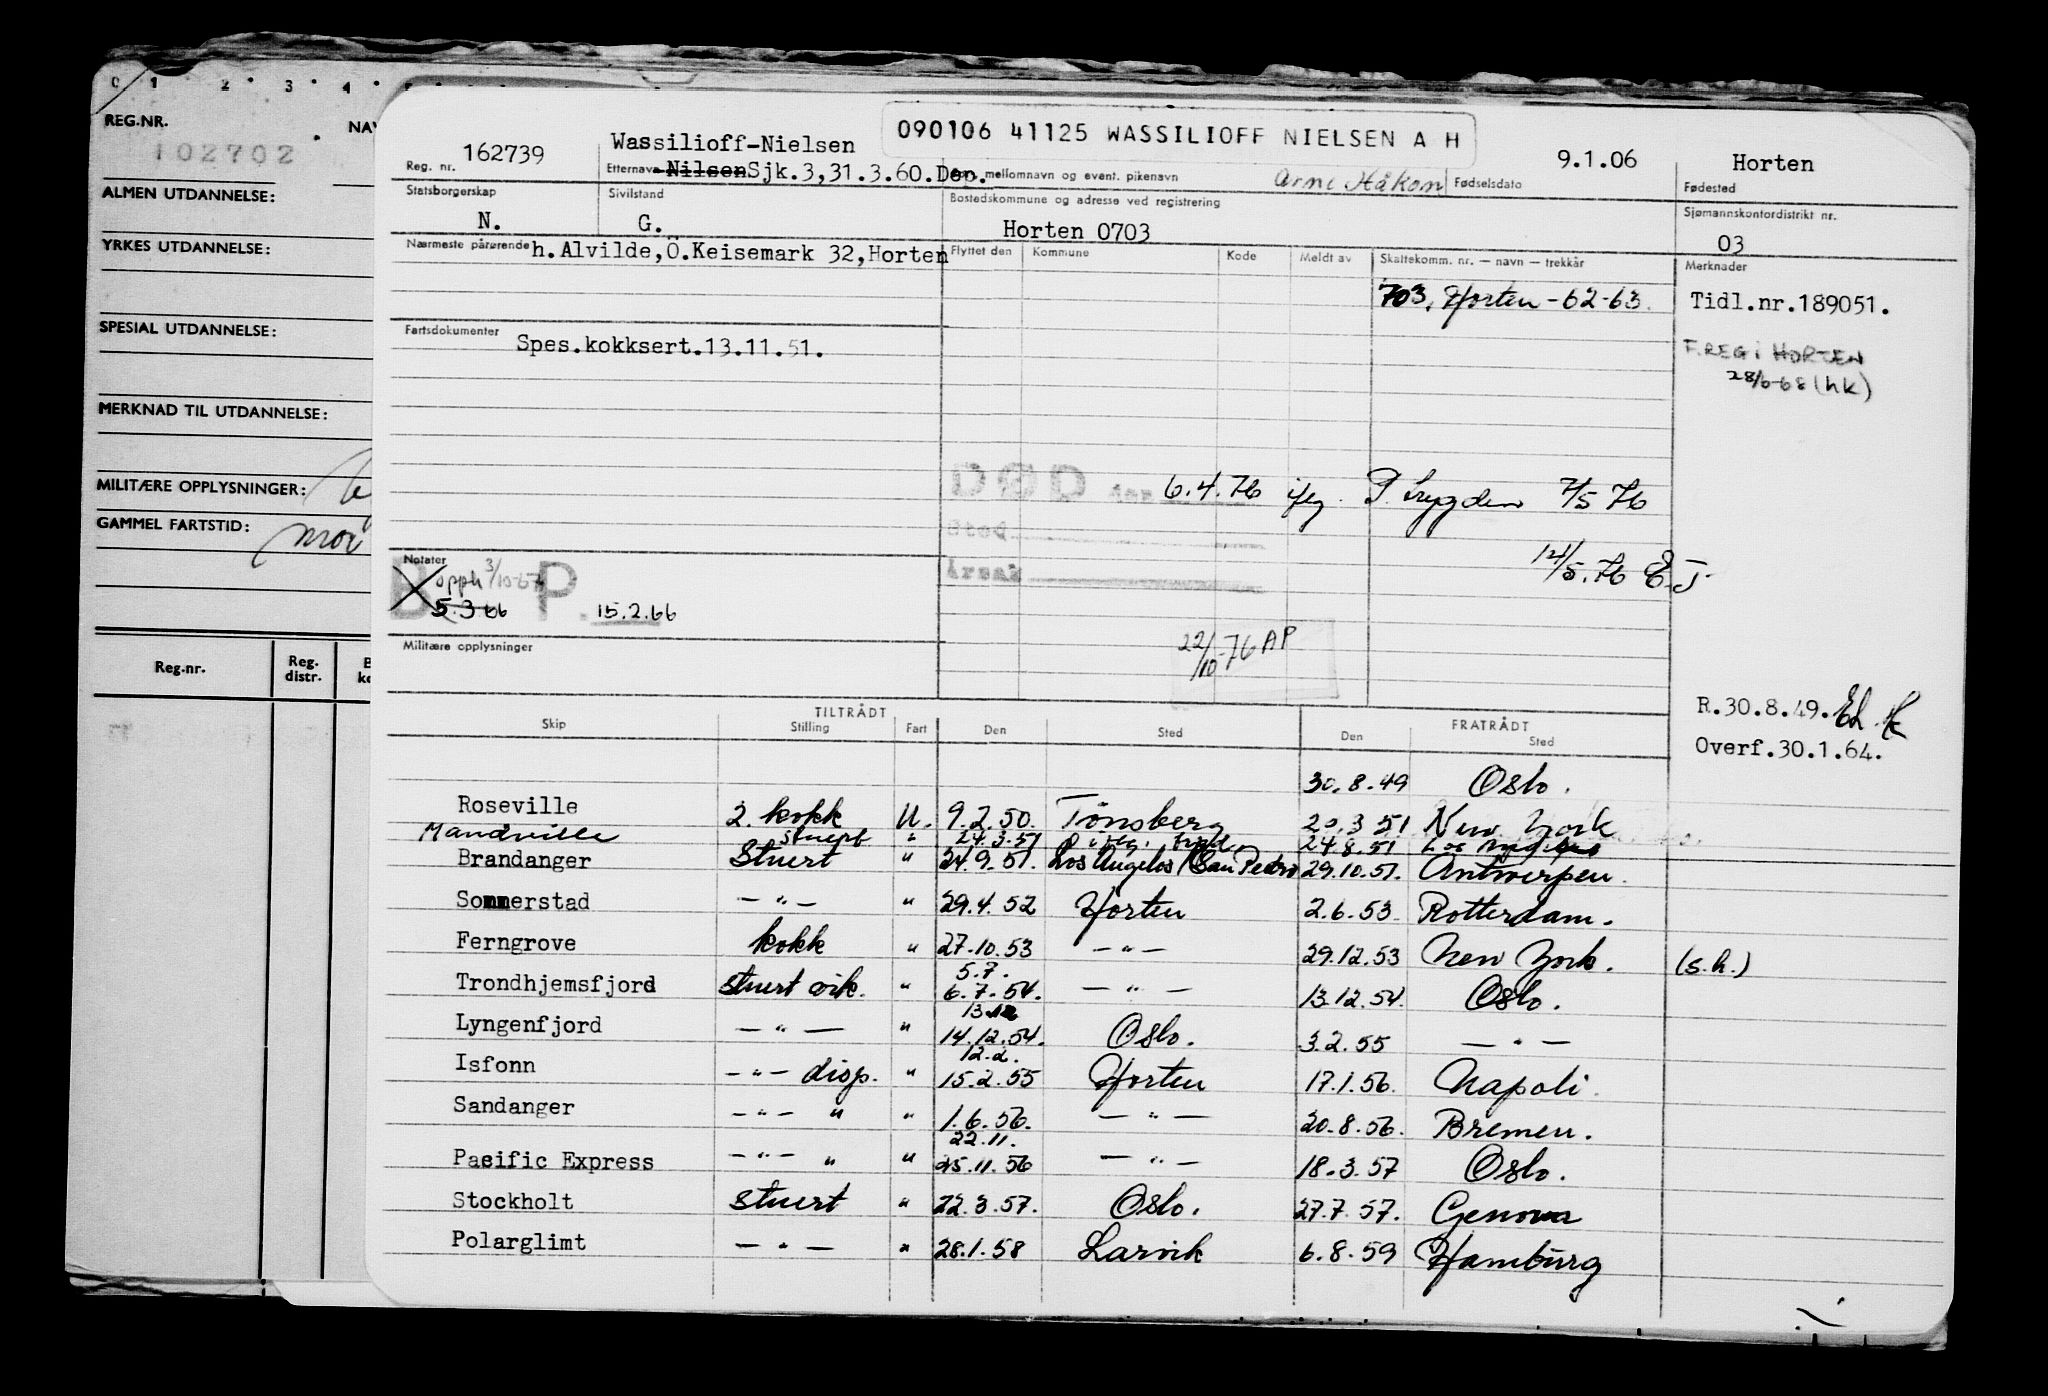 0 1 2 3 4
REG.NR.
NAV
102702
ALMEN UTDANNELSE:
YRKES UTDANNELSE:
SPESIAL UTDANNELSE:
MERKNAD TIL UTDANNELSE:
MILITÆRE OPPLYSNINGER:
GAMMEL FARTSTID:
Reg.nr. Reg. distr.
090106 41125 WASSILIOFF NIELSEN A H
Reg. nr. 162739
Wassilioff-Nielsen
Etternavn Nilsen Sjk.3,31.3.60.Dep. mellomnavn og event. pikenavn Arne Håkon
Fødselsdato 9.1.06
Horten
Fødested
Statsborgerskap N.
Sivilstand G.
Bostedskommune og adresse ved registrering
Horten 0703
Sjømannskontordistrikt nr.
03
Nærmeste pårørende h.Alvilde,Ö.Keisemark 32,Horten
Flyttet den Kommune Kode Meldt av Skattekomm. nr. — navn — trekkår
Merknader
703. Horten - 62-63.
Tidl.nr.189051.
F.REG i HORTEN
28/6-68 (hk)
Fartsdokumenter Spes.kokksert.13.11.51.
DØD den 6.4.76 iflg. P. Trygden 7/5 76
Sted
Årsak
12/5.76 E.J
Notater
B opph 3/10-67
5.3 66 P. 15.2.66
22/10-76 AP
Militære opplysninger
R.30.8.49.
Overf.30.1.64.
TILTRÅDT FRATRÅDT
Skip Stilling Fart Den Sted Den Sted
30.8.49 Oslo.
Roseville 2. kokk U. 9.2.50. Tönsberg 20.3 51 New York
Mandville stuert " 24.3.51 24.8.51 Los Angelos
Brandanger Stuert " 24.9.51. Los Angelos/San Pedro 29.10.51. Antwerpen.
Sommerstad — " — " 29.4.52 Horten 2.6.53 Rotterdam.
Ferngrove kokk " 27.10.53 — " — 29.12.53 New York. (s.h.)
5.7.
Trondhjemsfjord stuert vik. " 6.7.54. — " — 13.12.54. Oslo.
13.12
Lyngenfjord — " — " 14.12.54. Oslo. 3.2.55 — " —
12.2.
Isfonn — " — disp. " 15.2.55 Horten 17.1.56. Napoli.
Sandanger — " — " " 1.6.56. — " — 20.8.56. Bremen.
22.11.
Pacific Express — " — " " 25.11.56 — " — 18.3.57 Oslo.
Stockholt stuert " 22.3.57. Oslo. 27.7.57. Genova
Polarglimt — " — " 28.1.58 Larvik 6.8.59 Hamburg